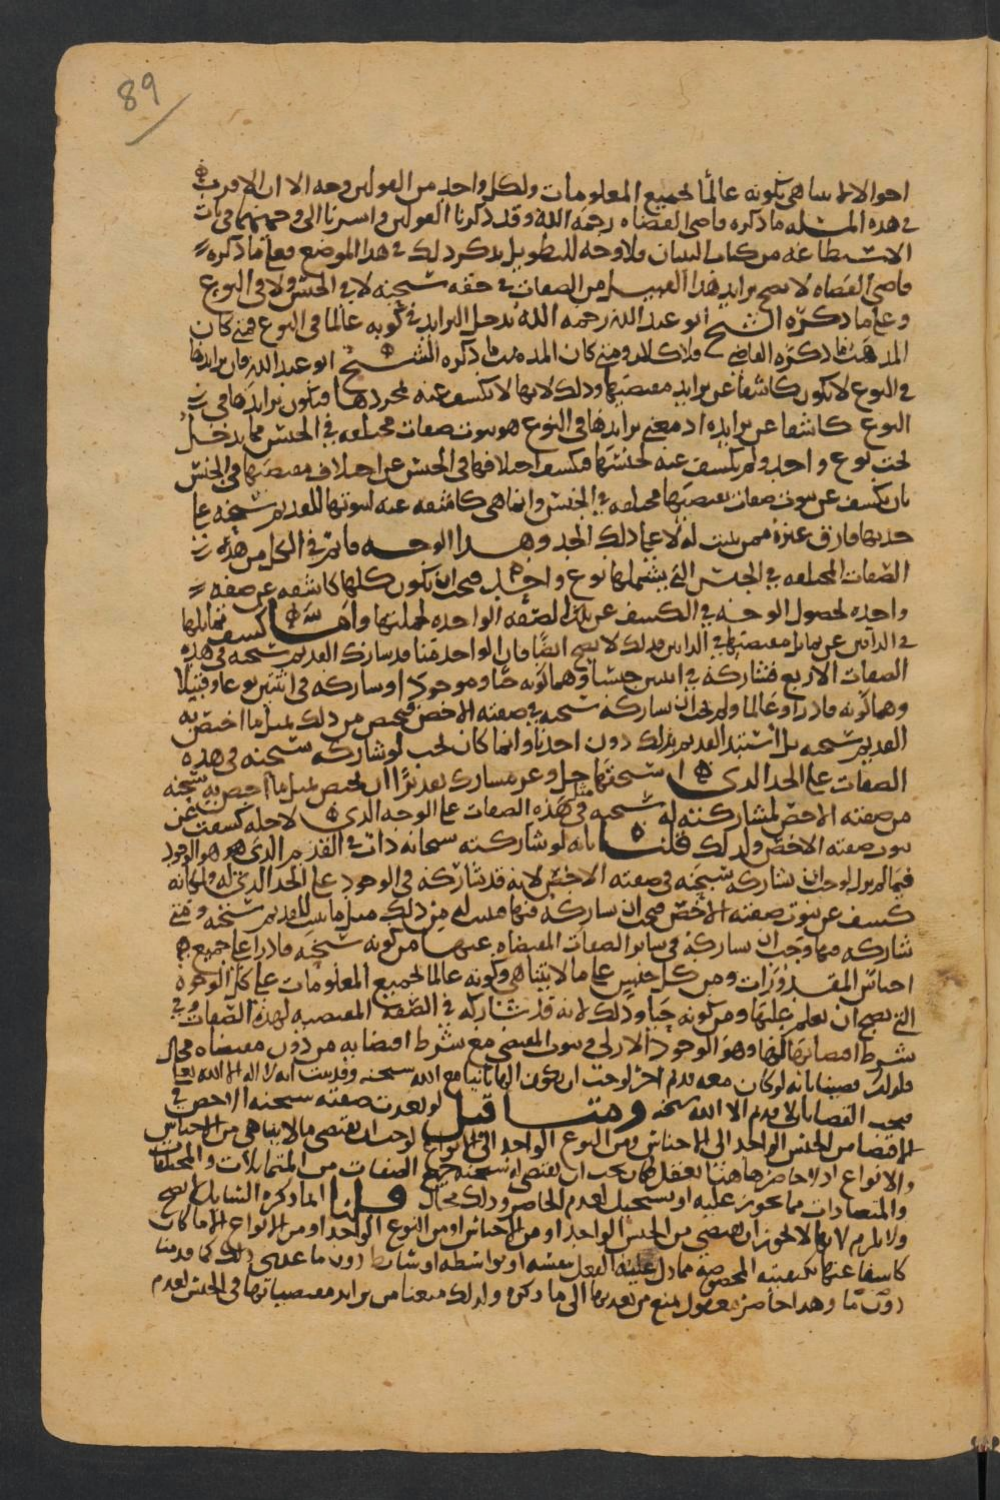 89
احوالا لا تتناهى بكونه عالما لجميع المعلومات ولكل واحد من القولين وجه الا ان الاقرب
في هذه المسئله ما ذكره قاضي القضاه رحمه الله وقد ذكرنا القولين واشرنا الى وجههما في باب
الاستطاعه من كتاب البيان ولا وجه للتطويل بذكر ذلك في هذا الموضع فعلى ما ذكره
قاضي القضاه لا يصح تزايد هذا القبيل من الصفات في حقه سبحنه لا في الجنس ولا في النوع
وعلى ما ذكره الشيخ ابو عبد الله رحمه الله يدخل التزايد في كونه عالما في النوع فمتى كان
المذهب ما ذكره القاضي فلا كلام ومتى كان المذهب ما ذكره الشيخ ابو عبد الله فان تزايدها
في النوع لا يكون كاشفا عن تزايد مقتضيها وذلك لانها لا تكشف عنه بمجردها فيكون تزايدها في
النوع كاشفا عن تزايده اذ معنى تزايدها في النوع هو ثبوت صفات مختلفه في الجنس مما يدخل
تحت نوع واحد ولم تكشف عنه لجنسها فيكشف اختلافها في الجنس عن اختلاف مقتضيها في الجنس
بان يكشف عن ثبوت صفات تقتضيها مختلفه في الجنس وانما هي كاشفه عنه لثبوتها للقديم سبحنه على
حد بها فارق غيره ممن ثبتت له لا على ذلك الحد وهذا الوجه قائم في الكل من هذه
الصفات المختلفه في الجنس التي يشملها نوع واحد فيجب ان تكون كلها كاشفه عن صفه
واحده لحصول الوجه في الكشف عن تلك الصفه الواحده لجملتها واما كشف تماثلها
في الذاتين عن تماثل مقتضيها في الذاتين فذلك لا يصح ايضا فان الواحد منا قد شارك القديم سبحنه في هذه
الصفات الاربع فشاركه في اثنتين جنسا وهما كونه حيا وموجودا وشاركه في اثنتين نوعا وقبيلا
وهما كونه قادرا وعالما ولم يجب ان يشاركه سبحنه في صفته الاخص فيختص من ذلك بمثل ما اختص به
القديم سبحنه بل استبد القديم بذلك دون احدنا وانما كان يجب لو شاركه سبحنه في هذه
الصفات على الحد الذي استحقها جل وعز مشارك تقديرا ان يختص بمثل ما اختص به سبحنه
من صفته الاخص لمشاركته له سبحنه في هذه الصفات على الوجه الذي لاجله كشفت عن
ثبوت صفته الاخص ولذلك قلنا بانه لو شاركته سبحانه ذات في القدم الذي هو هو الوجود
فيما لم يزل لوجب ان تشاركه سبحنه في صفته الاخص لانه قد شاركه في الوجود على الحد الذي له ولمكانه
كشف عن ثبوت صفته الاخص فيجب ان يشاركه فيها فيثبت له من ذلك مثل ما ثبت للقديم سبحنه ومتى
شاركه فيها وجب ان يشاركه في سائر الصفات المقتضاه عنها من كونه سبحنه قادرا على جميع
اجناس المقدورات ومن كل جنس على ما لا يتناهى وكونه عالما لجميع المعلومات على كل الوجوه
التي يصح ان تعلم عليها ومن كونه حيا وذلك لانه قد شاركه في الصفه المقتضيه لهذه الصفات وفي
شرط اقتضائها لها وهو الوجود الازلي وثبوت المقتضي مع شرط اقتضائه من دون مقتضاه محال
فلذلك قضينا بانه لو كان معه قديم اخر لوجب ان يكون الها ثانيا مع الله سبحنه وقد ثبت انه لا اله الا الله تعالى
فيجب القضا بان لا قديم الا الله سبحنه ومتى قيل لو تعدت صفته سبحنه الاخص في
الاقتضا من الجنس الواحد الى الاجناس ومن النوع الواحد الى الانواع لوجب ان تقتضي ما لا يتناهى من الاجناس
والانواع اذ لا حاصر هاهنا يعقل فكان يجب ان تقتضي له سبحنه جميع الصفات من المتماثلات والمختلفات
والمتضادات مما يجوز عليه او يستحيل لعدم الحاصر وذلك محال قلنا ان ما ذكره السائل لا يصح
ولا يلزم لانها لا يجوز ان تقتضي من الجنس الواحد او من الاجناس او من النوع الواحد او من الانواع الا ما كان
كاشفا عنها بكيفيته المخصوصه مما دل عليه الفعل بنفسه او بواسطه او شائط دون ما عدى ذلك كما قدمنا
دون ما وهذا حاصر معقول يمنع من تعديها الى ما ذكره ولذلك منعنا من تزايد مقتضياتها في الجنس لعدم